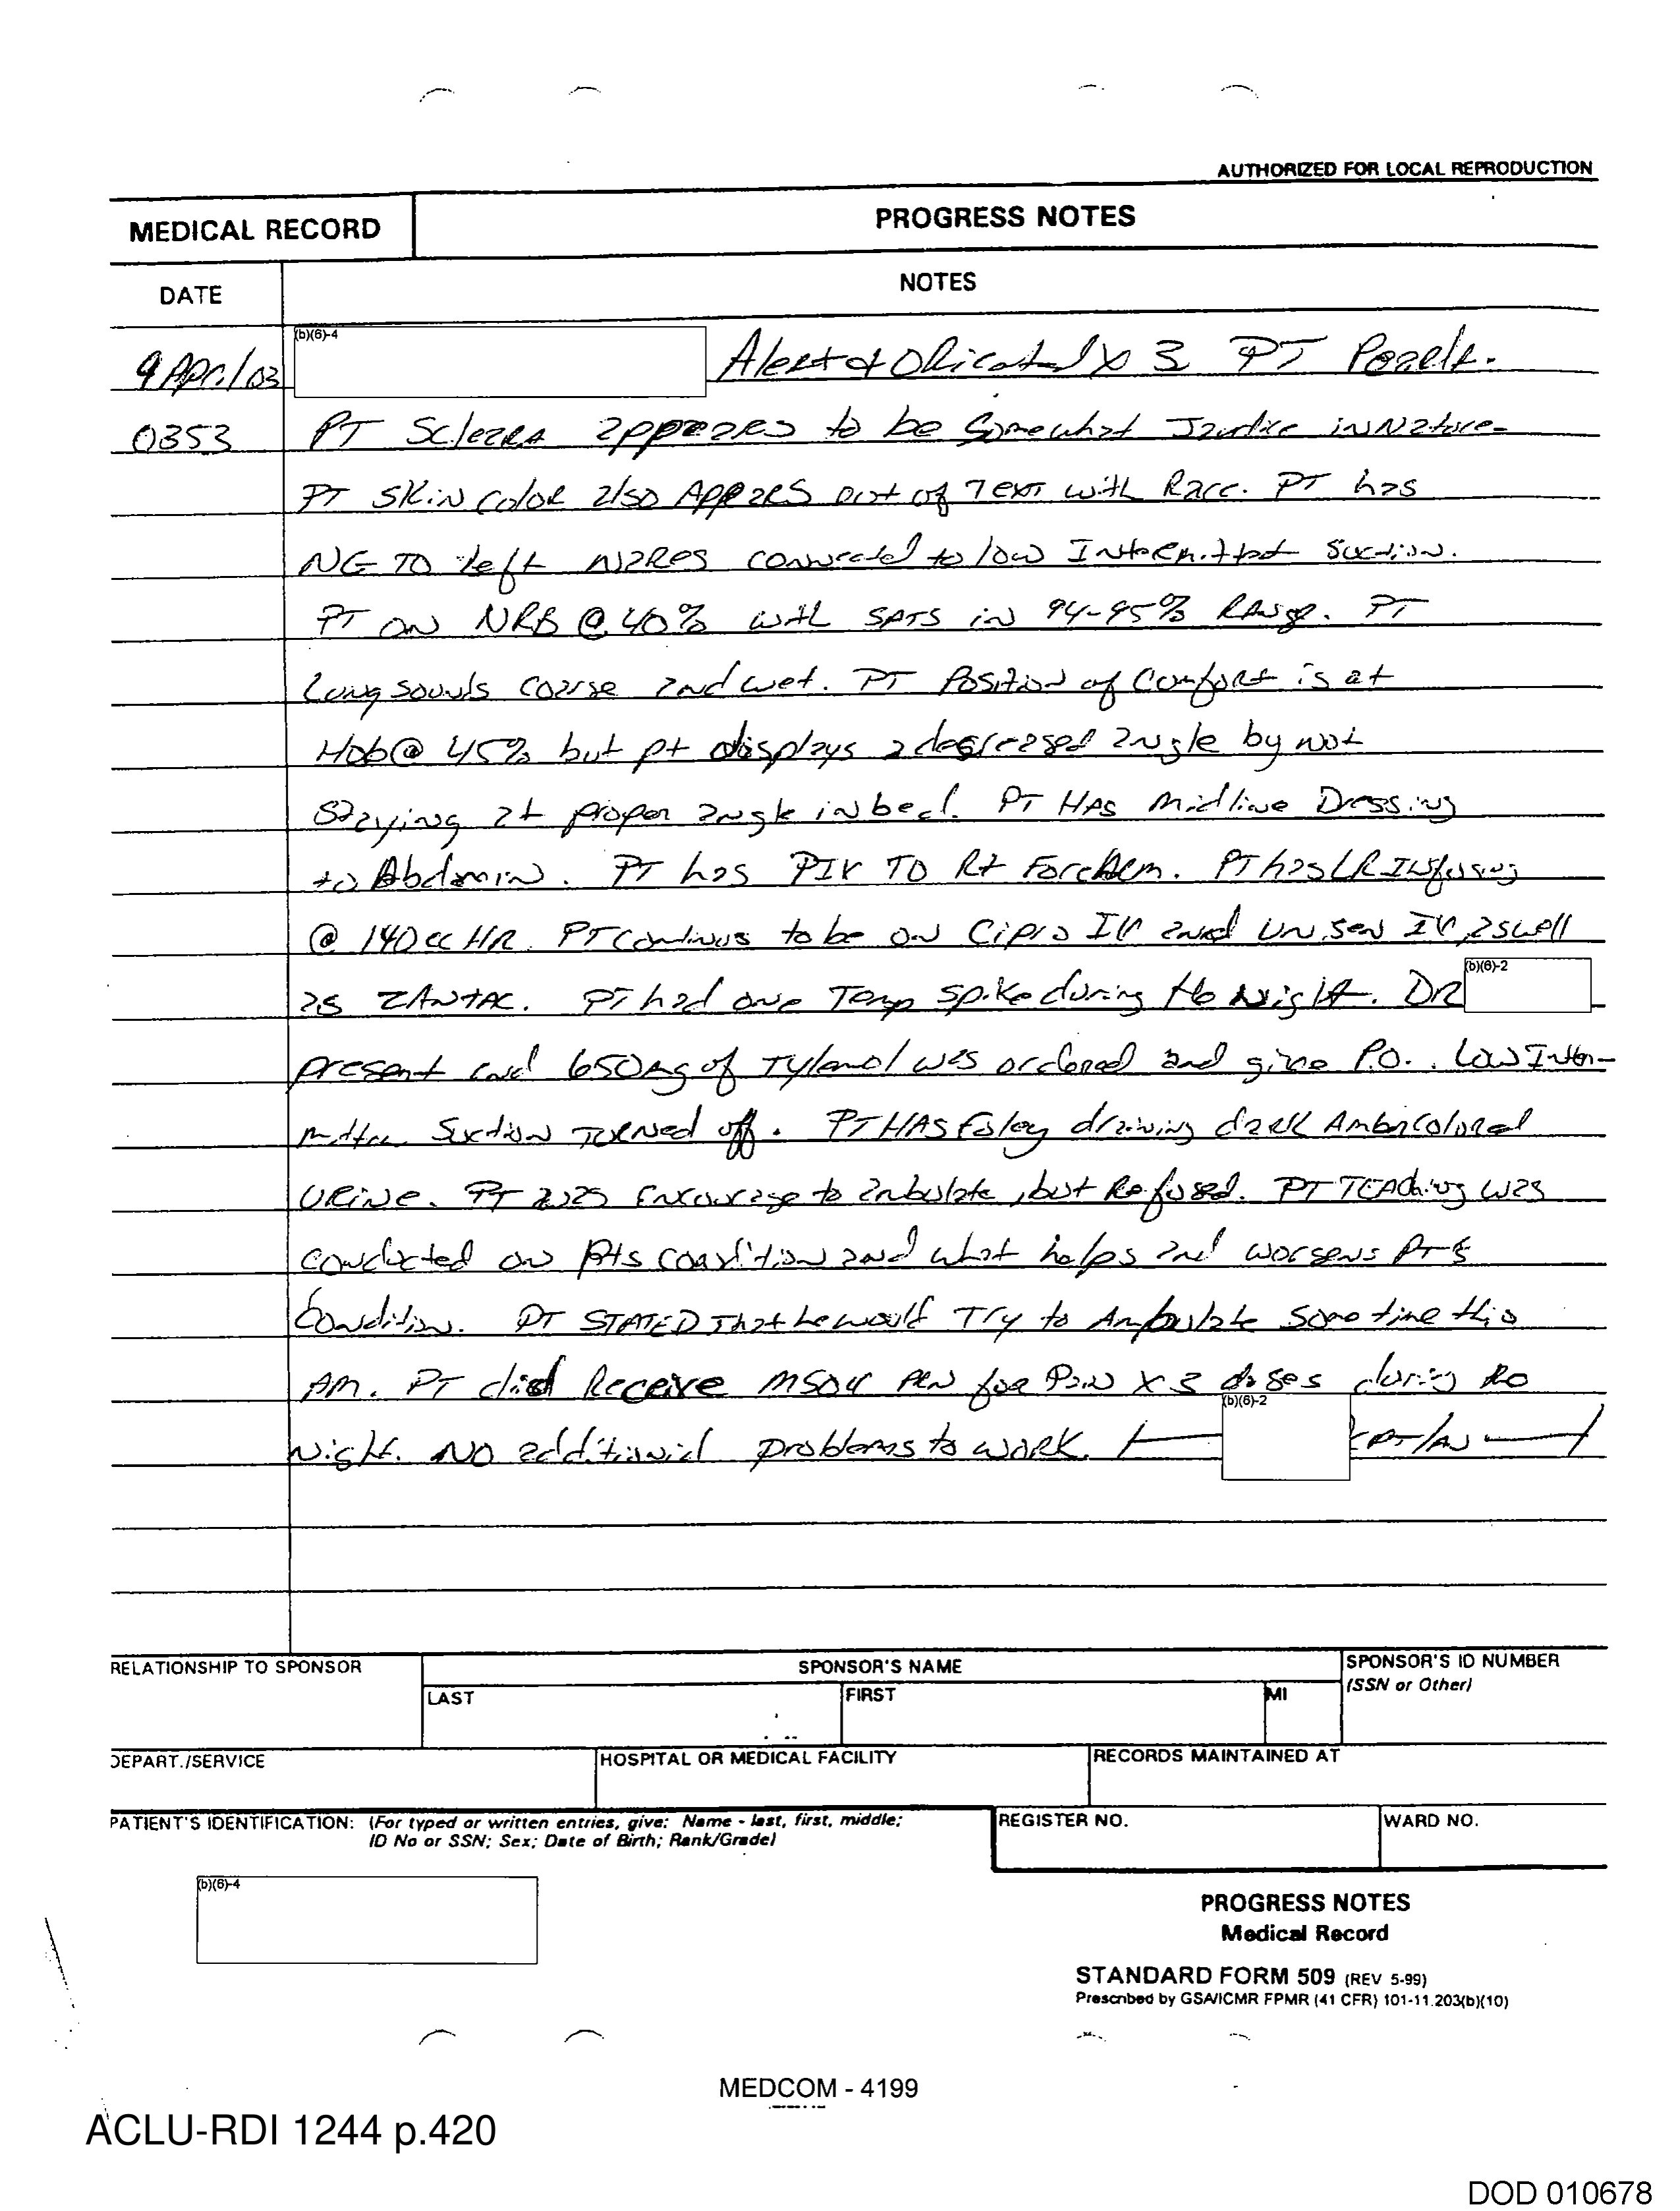 AUTHORIZED FOR LOCAL REPRODUCTION
MEDICAL RECORD
PROGRESS NOTES
DATE
NOTES
(b)(6)-4
9 Apr/03 Alert & Oricated x 3 PT
0353 PT Sclerra appears to be Somewhat Jandice in Nature.
PT SKin color also Appears out of Text with Race. PT has
NG TO left NARES connected to low Intermittant Suction.
PT ON NRB @ 40% with SATS in 94-95% Range. PT
Lung sounds coarse and wet. PT Position of Comfort is at
Hob@ 45% but pt displays a degreased angle by not
Staying at proper angle in bed. PT HAS Midline Dressing
to Abdomin. PT has PIV TO Rt ForeArm. PT has LR Infusing
@ 140cc HR. PT Continus to be on Cipro IV and Unisen IV, as well
as ZANTAC. PT had one Temp spike during the Night. DR
(b)(6)-2
present and 650mg of Tylenol was ordered and given P.O.. Low Inter-
Suction Turned off. PT HAS Foley draining dark Ambercolored
Urine. PT was Encourage to anbulate, but Refused. PT TEAching was
conducted on Pts condition and what helps and worsens Pt's
Condition. PT STATED That he would Try to Ambulate Sometime this
AM. PT did Receive MSO4 PRN for Pain x 3 doses during
(b)(6)-2
Night. NO additional problems to work.
RELATIONSHIP TO SPONSOR
SPONSOR'S NAME
SPONSOR'S ID NUMBER
(SSN or Other)
LAST
FIRST
MI
DEPART./SERVICE
HOSPITAL OR MEDICAL FACILITY
RECORDS MAINTAINED AT
PATIENT'S IDENTIFICATION: (For typed or written entries, give: Name - last, first, middle;
ID No or SSN; Sex; Date of Birth; Rank/Grade)
REGISTER NO.
WARD NO.
(b)(6)-4
PROGRESS NOTES
Medical Record
STANDARD FORM 509 (REV 5-99)
Prescribed by GSA/ICMR FPMR (41 CFR) 101-11.203(b)(10)
MEDCOM - 4199
ACLU-RDI 1244 p.420
DOD 010678